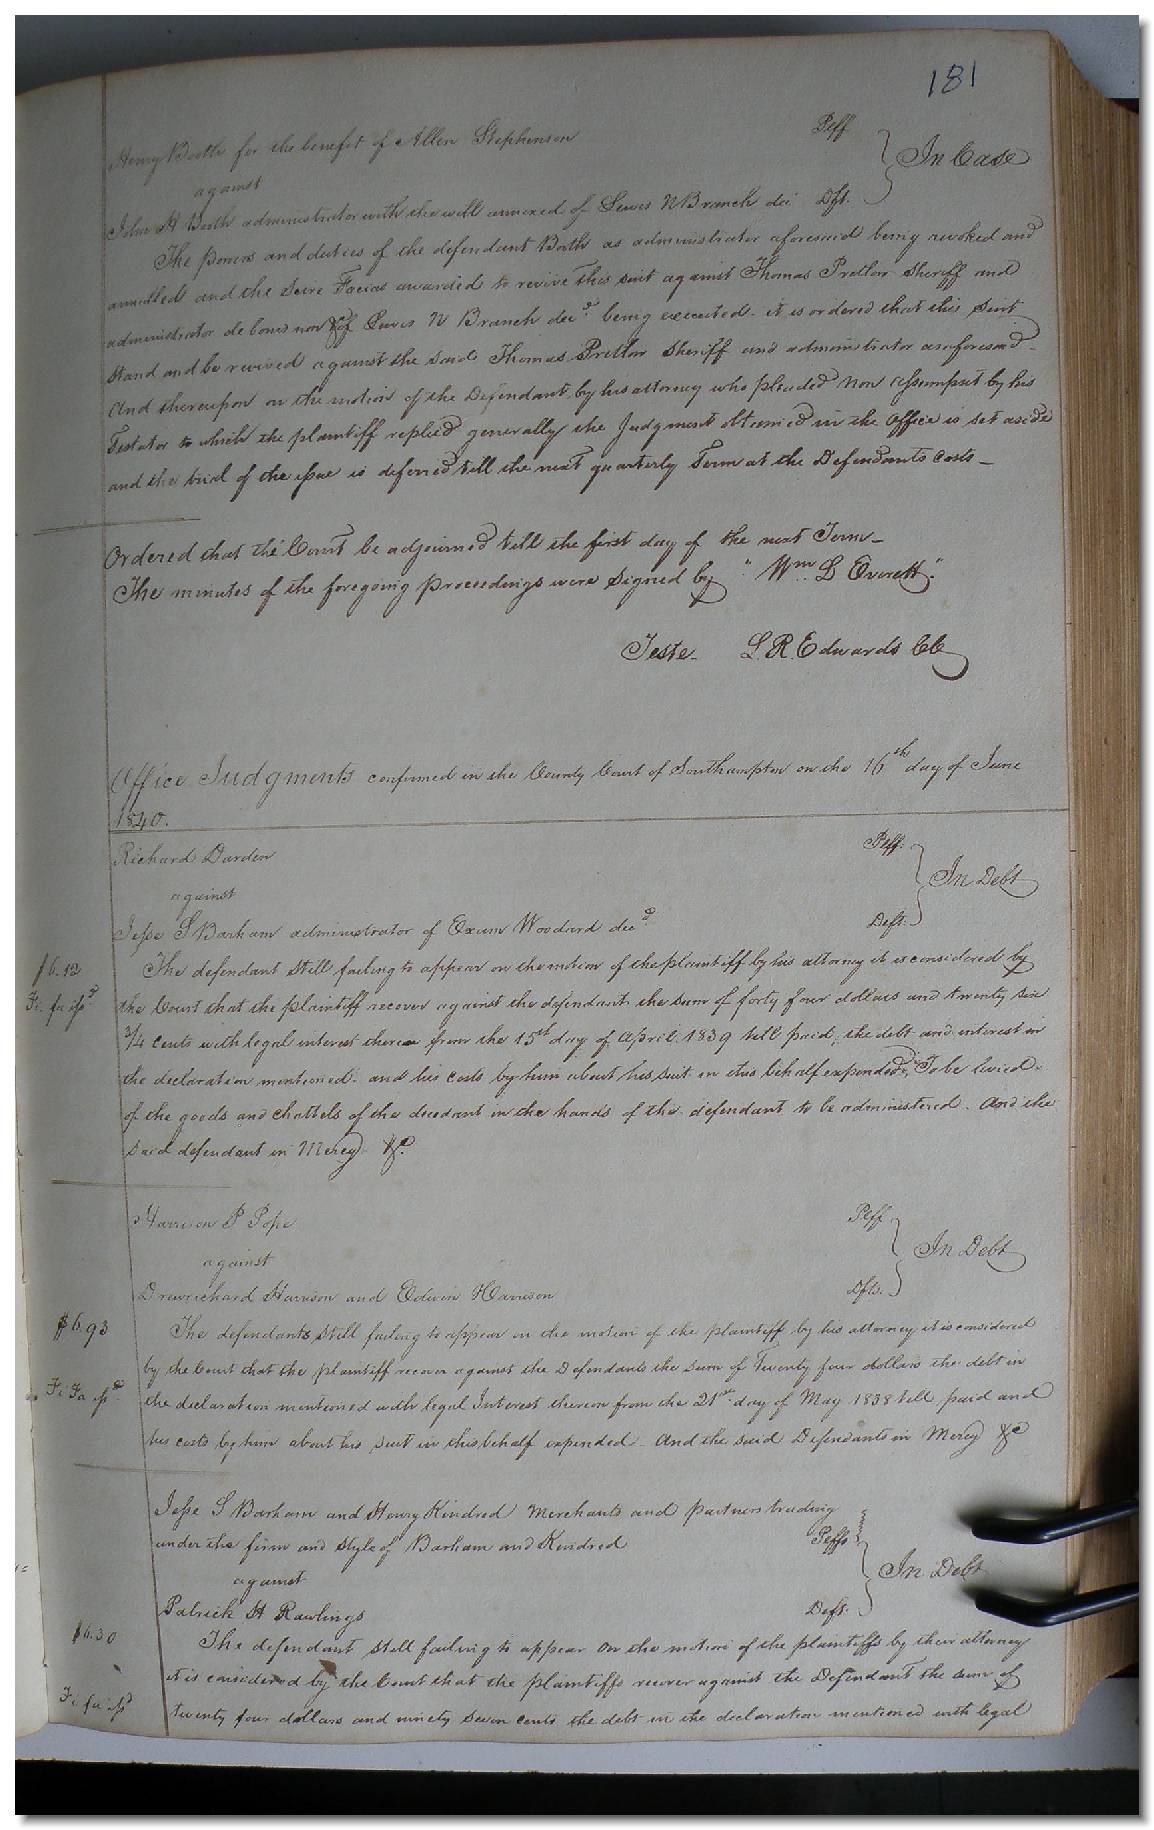 181
Henry Booth for the benefit of Allen Stephenson Pltff
against In Case
John H Booth administrator with the will annexed of Lewis N Branch dec Dft.
The powers and duties of the defendant Booth as administrator aforesaid being revoked and
annulled and the Scire Facias awarded to revive this suit against Thomas Pretlow Sheriff and
administrator de bonis non &c of Lewis N Branch decd. being executed - it is ordered that this suit
stand and be revived against the said Thomas Pretlow Sheriff and administrator as aforesaid -
And thereupon on the motion of the Defendant, by his attorney who pleaded Non assumpsit by his
Testator to which the plaintiff replied generally the Judgment obtained in the Office is set aside
and the trial of the issue is deferred till the next quarterly Term at the Defendants costs -
Ordered that the Court be adjourned till the first day of the next Term -
The minutes of the foregoing proceedings were signed by "Wm. L Everett."
Teste - L. R. Edwards CC
Office Judgments confirmed in the County Court of Southampton on the 16th day of June
1840.
Richard Darden Pltff.
against In Debt
Jesse S Barham administrator of Exum Woodard decd. Deft.
$6.12 The defendant still failing to appear on the motion of the plaintiff by his attorney it is considered by
Fi. fa issd the Court that the plaintiff recover against the defendant the sum of forty four dollars and twenty six
3/4 cents with legal interest thereon from the 15th day of April 1839 till paid, the debt and interest in
the declaration mentioned. and his costs by him about his suit in this behalf expended, To be levied
of the goods and chattels of the decedant in the hands of the defendant to be administered. And the
said defendant in Mercy &c.
Harrison P Pope Pltff
against In Debt
Drewrichard Harrison and Edwin Harrison Dfts.
$6.93 The defendants still failing to appear on the motion of the plaintiff by his attorney it is considered
by the Court that the plaintiff recover against the Defendants the sum of Twenty four dollars the debt in
Fi Fa issd the declaration mentioned with legal Interest thereon from the 21st day of May 1838 till paid and
his costs by him about his suit in this behalf expended - And the said Defendants in Mercy &c
Jesse S Barham and Henry Kindred Merchants and partners trading
under the firm and style of Barham and Kindred Pltffs
against In Debt
Patrick H Rawlings Deft.
$6.30 The defendant still failing to appear on the motion of the plaintiffs by their attorney
it is considered by the Court that the plaintiffs recover against the Defendant the sum of
Fi fa issd twenty four dollars and ninety seven cents the debt in the declaration mentioned with legal